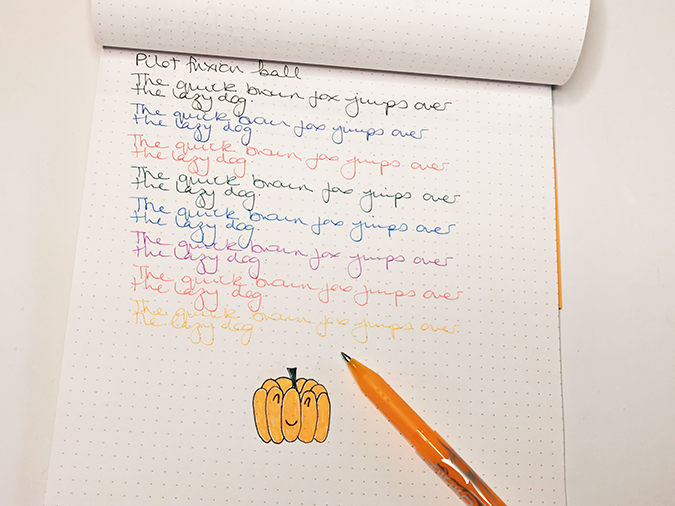 Pilot frixion ball
The quick brown fox jumps over
the lazy dog.
The quick brown fox jumps over
the lazy dog
The quick brown fox jumps over
the lazy dog.
The quick brown fox jumps over
the lazy dog.
The quick brown fox jumps over
the lazy dog.
The quick brown fox jumps over
the lazy dog.
The quick brown fox jumps over
the lazy dog.
The quick brown fox jumps over
the lazy dog.